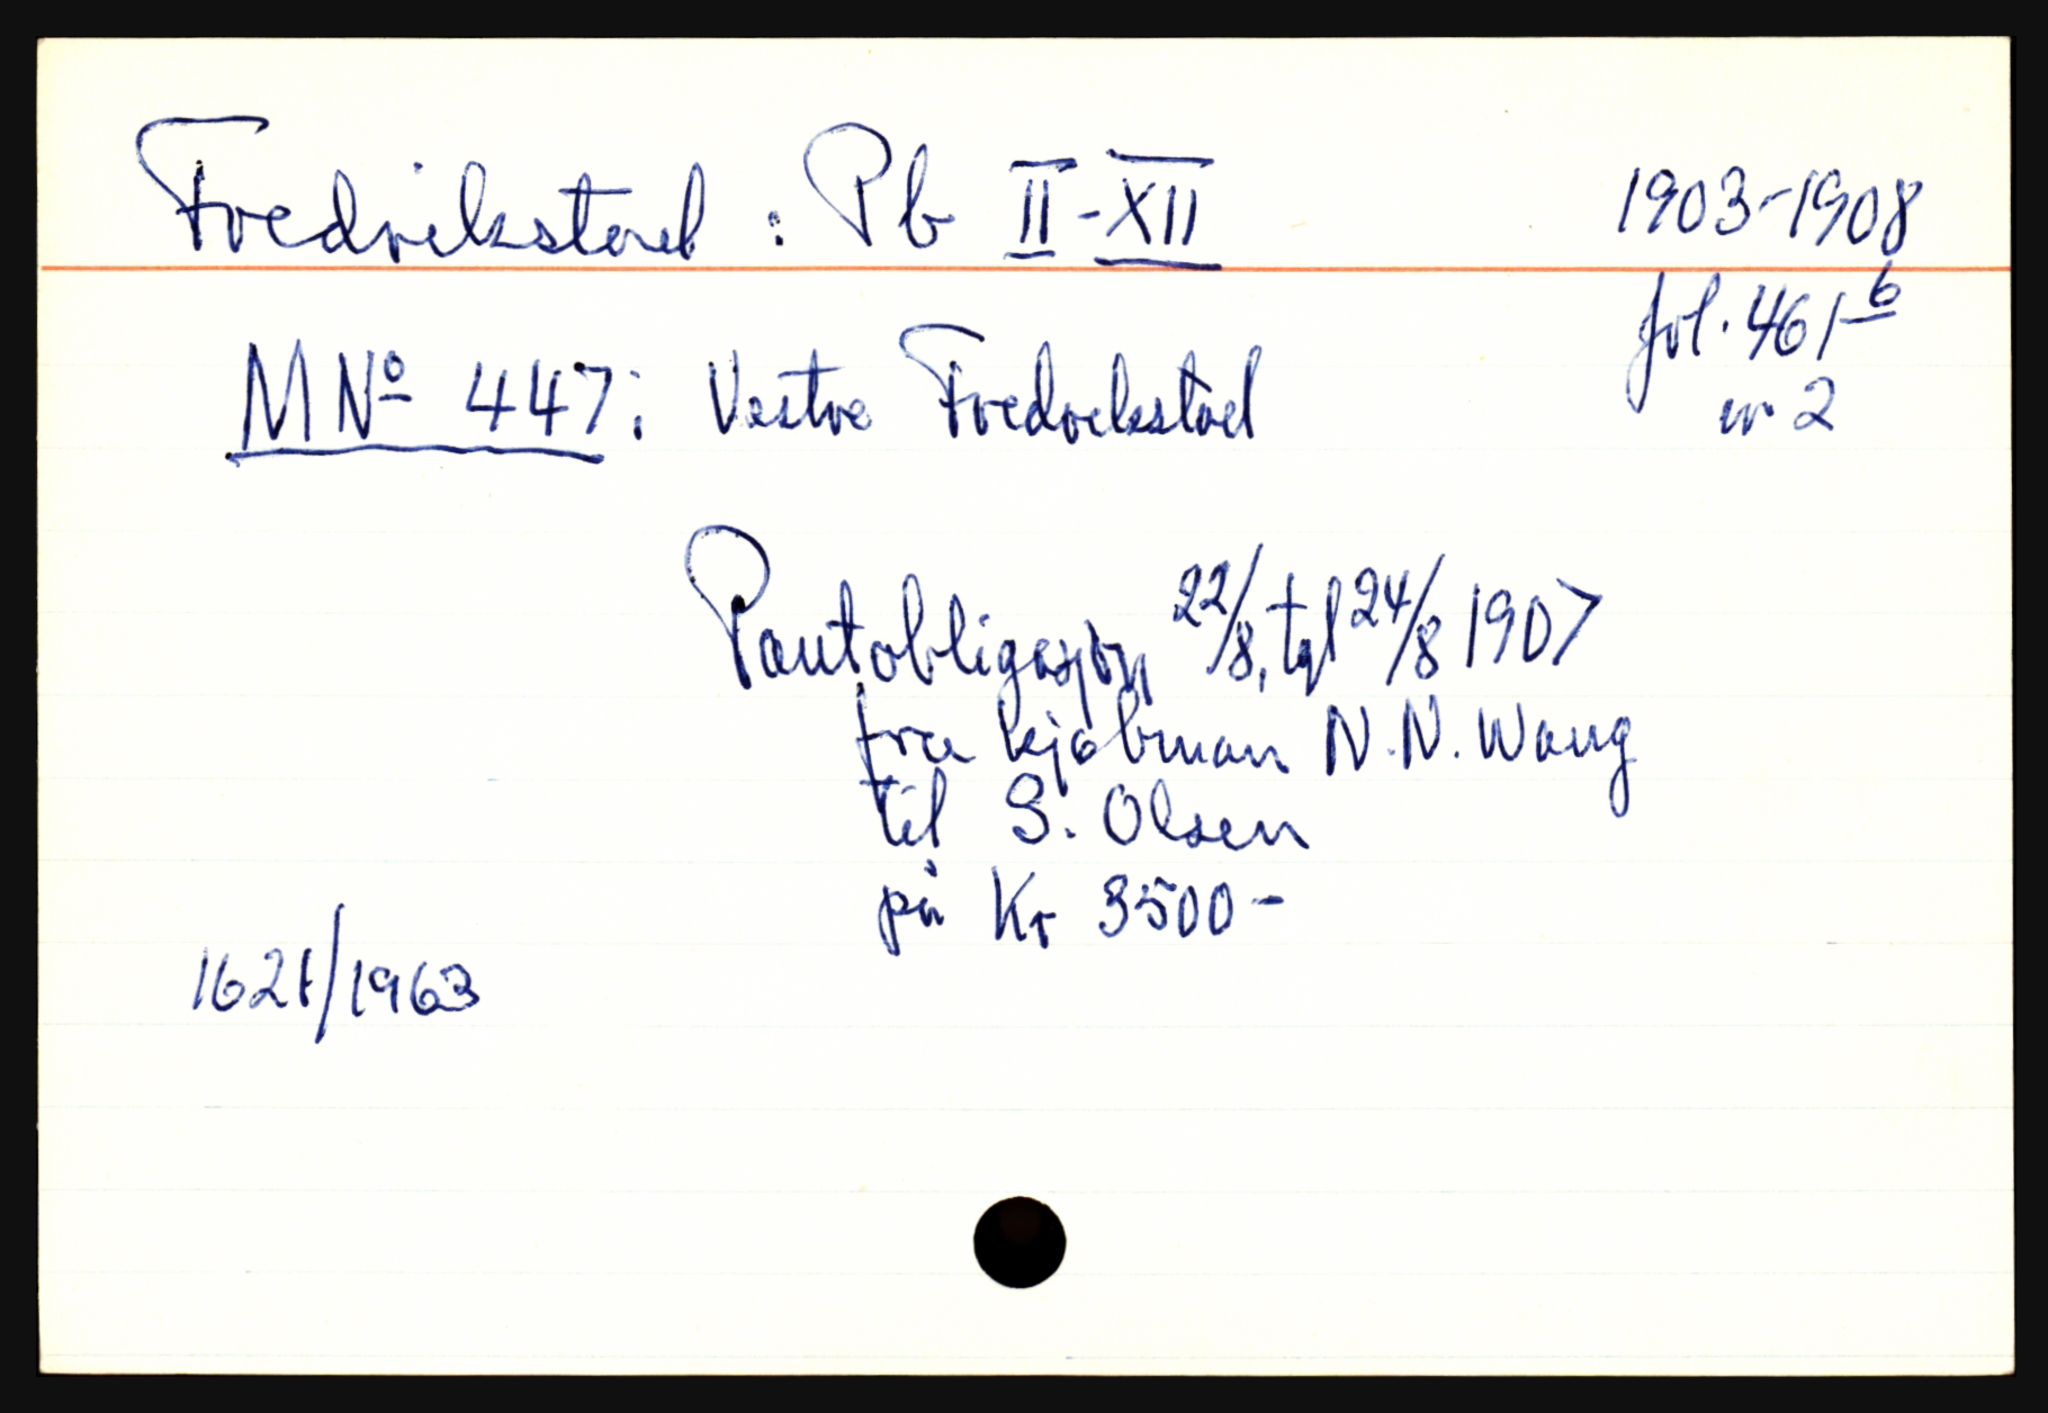 Fredrikstad : Pb II-XII 1903-1908
fol. 461 b
nr 2
MNo 447: Vestre Fredrikstad
Pantobligasjon 22/8, tgl 24/8 1907
fra kjøbman N.N. Wang
til S. Olsen
på Kr 3500-
1621/1963